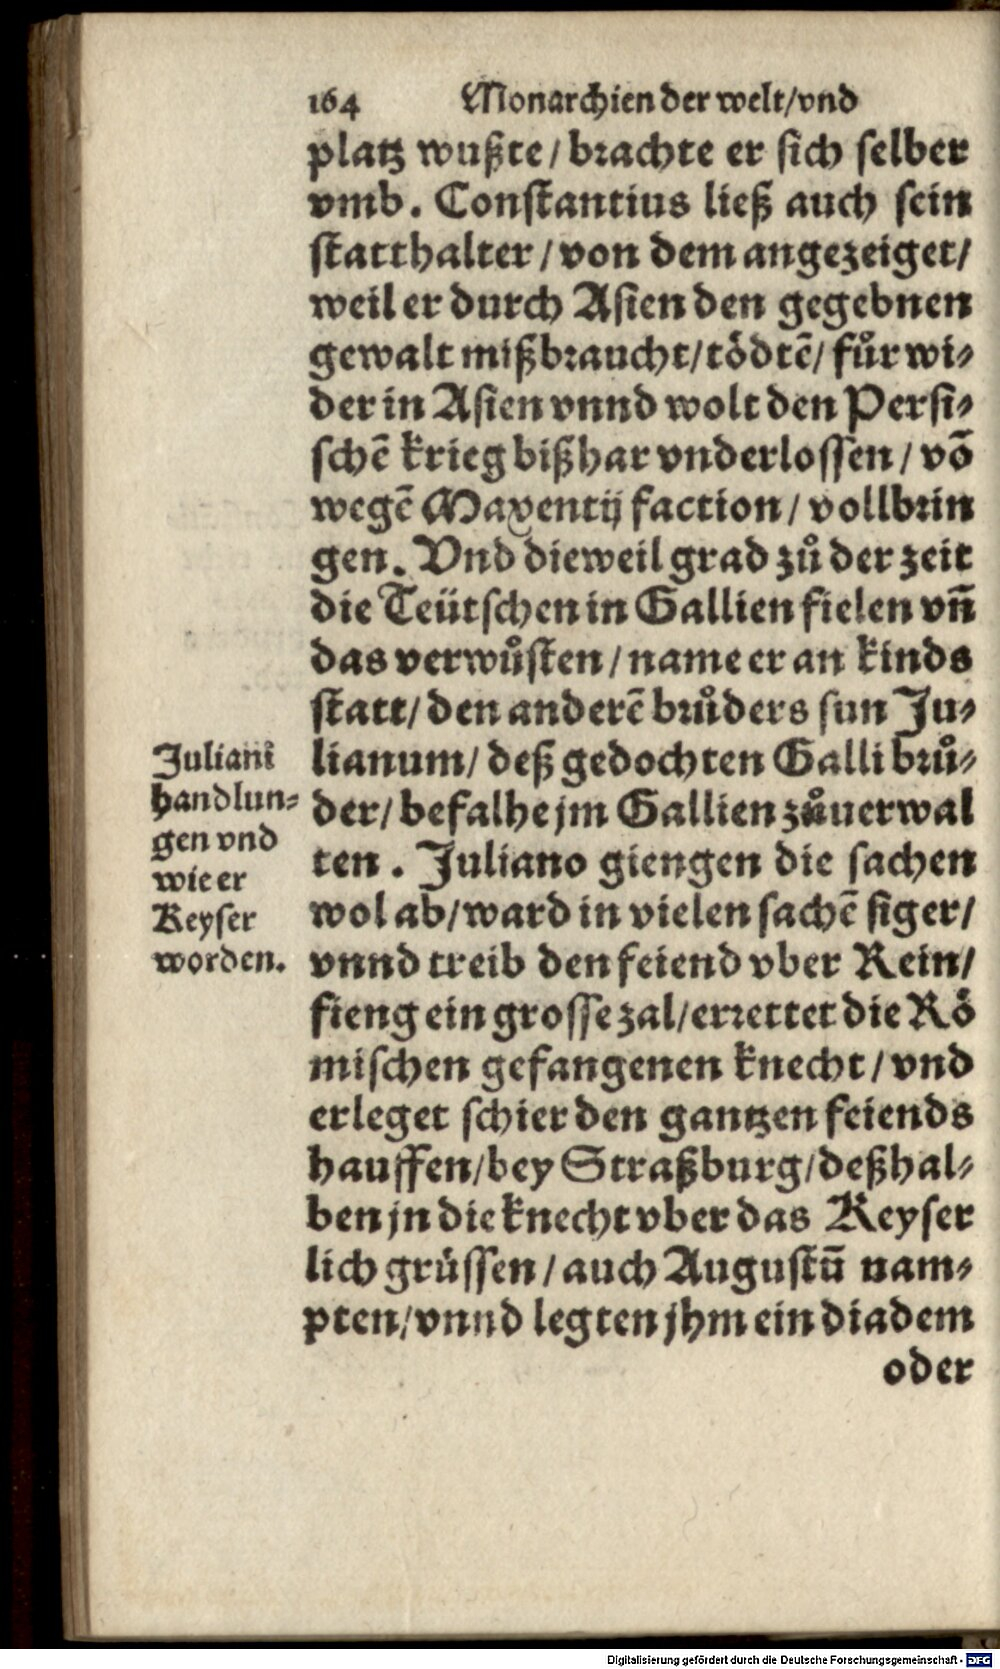 164 Monarchien der welt/vnd
platz wußte/ brachte er sich selber
vmb. Constantius ließ auch sein
statthalter/ von dem angezeiget/
weil er durch Asien den gegebnen
gewalt mißbraucht/ tödtẽ/ fůr wi⸗
der in Asien vnnd wolt den Persi⸗
schẽ krieg bißhar vnderlossen/ võ
wegẽ Maxentij faction/ vollbrin
gen. Vnd dieweil grad zů der zeit
die Teütschen in Gallien fielen vñ
das verwůsten/ name er an kinds
statt/ den anderẽ brůders sun Ju⸗
lianum/ deß gedochten Galli brů⸗
der/ befalhe jm Gallien zůuerwal
ten. Juliano giengen die sachen
wol ab/ ward in vielen sachẽ siger/
vnnd treib den feiend vber Rein/
fieng ein grosse zal/ errettet die Rö
mischen gefangenen knecht/ vnd
erleget schier den gantzen feiends
hauffen/ bey Straßburg/ deßhal⸗
ben jn die knecht vber das Keyser
lich grüssen/ auch Augustũ nam⸗
pten/ vnnd legten jhm ein diadem
oder
Juliani
handlun⸗
gen vnd
wie er
Keyser
worden.
Digitalisierung gefördert durch die Deutsche Forschungsgemeinschaft - DFG